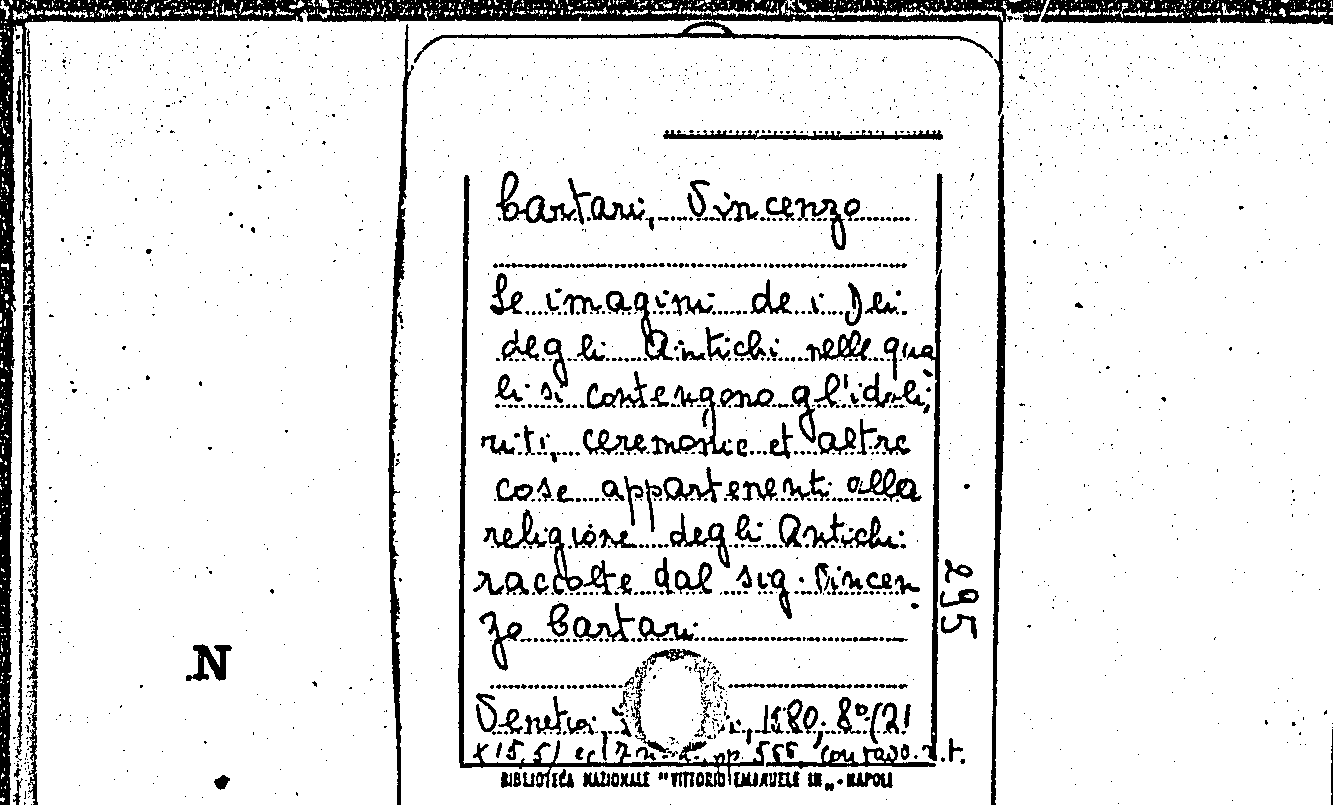 Cartari, Vincenzo
Le imagini de i Dei
degli Antichi nelle qua
li si contengono gl'idoli,
riti, ceremonie et altre
cose appartenenti alla
religione degli Antichi
raccolte dal sig. Vincen
zo Cartari
295
N
Venetia: 1580, 8º (21
x 15,5) cc. 17 n. n. pp. 566 con tavo. n. t.
BIBLIOTECA NAZIONALE "VITTORIO EMANUELE III" - NAPOLI